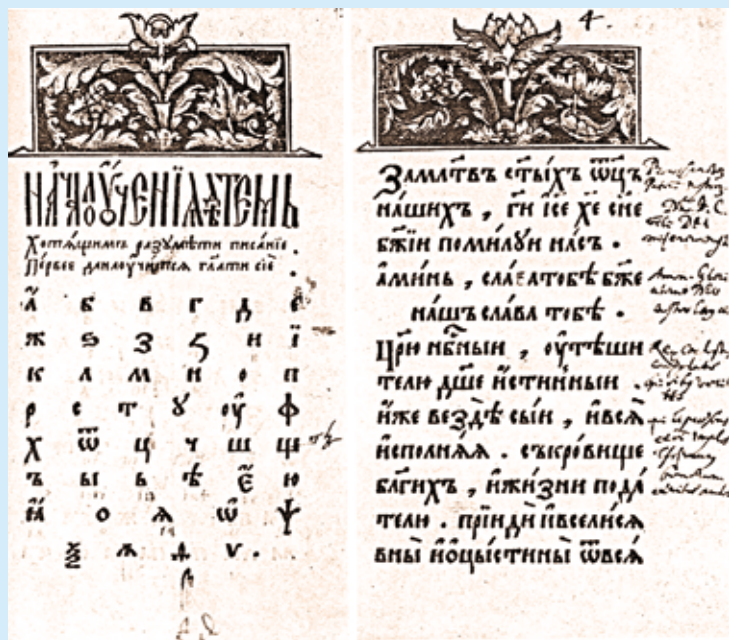 НАЧАЛОУЧЕНІѦДѢТЕМЪ
Хотѧщимъ разꙋмѣти писанїе.
Пе́рвое даиаоучи́тсѧ гл҃ати сїѐ.
А҆ б в г д е
ж ѕ з ҁ и ї
к л м н о п
р с т ꙋ оу҆ ф
х ѿ ц ч ш щ
ъ ы ь ѣ є҆ ю
ꙗ҆ о ѧ ѡ҆ ѱ
ѯ ѧ д ѵ.
4.
Замл҃твъ ст҃ы́хъ ѿц҃ъ
на́шихъ, гн҃ и і҆с҃е хе҃ сн҃е
бж҃їи поми́луи на́съ.
а҆ми́нь, сла́ватобѣ̀ бж҃е
на́шъ сла́ва тобѣ̀.
Цр҃ю нб҃ныи, оу҆тѣши
телю дш҃е и҆стинныи.
и҆же вездѣ̀ сы́и, и҆всѧ̀
и҆сполнѧ́ѧ. съкро́вище
бл҃ги́хъ, и҆жи́зни пода́
телю. прїидѝ и҆всели́сѧ
вны̀ и҆ѡ҆цы́стины̀ ѿвсѧ́